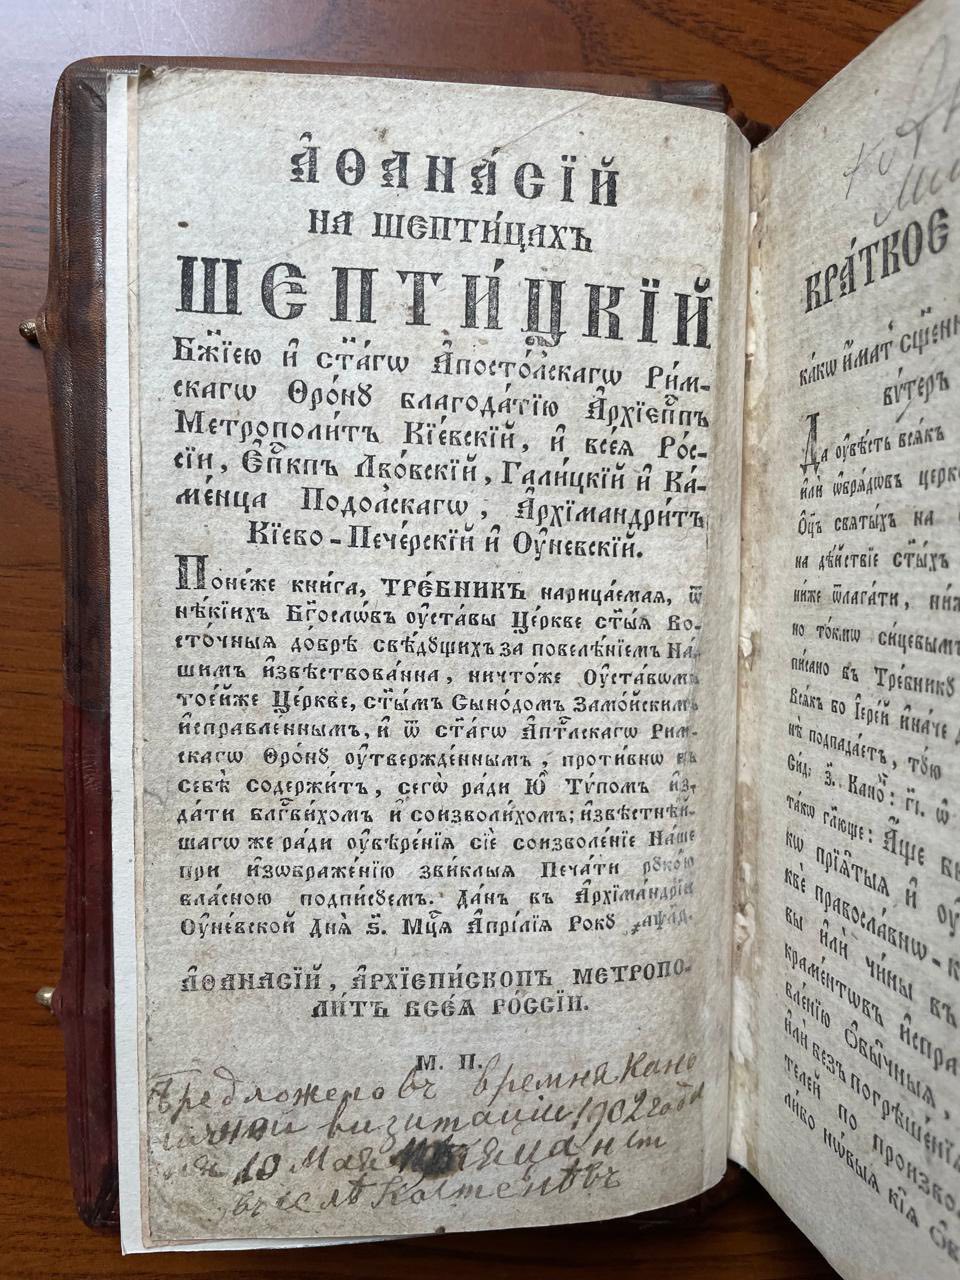 А҆ѳана́сїй
на Шепти́цахъ
Шепти́цкїй
Бж҃їею и҆ ст҃а́гѡ А҆посто́лскагѡ Ри́м-
скагѡ Ѳро́нꙋ благода́тїю А҆рхїепⷭ҇пъ
Метрополи́тъ Кі́евскїй, и҆ всеѧ̀ Рос-
сі́и, Е҆пⷭ҇кпъ Лво́вскїй, Гали́цкїй и҆ Ка-
ме́нца Подо́лскагѡ, А҆рхїмандри́тъ
Кїево-Пече́рскїй и҆ Оу҆́невскїй.
Поне́же кни́га, ТРЕ́БНИКЪ нарица́емая, ѿ
нѣ́кіихъ Бг҃осло́въ оу҆ста́вы Це́ркве ст҃ы́ѧ Во-
сто́чныѧ до́брѣ свѣ́дꙋщихъ за повелѣ́нїемъ На́-
шимъ и҆звѣствова́нна, ничто́же Оу҆ста́вѡмъ
тоѐйже Це́ркве, ст҃ы́мъ Сѷно́домъ Замо́йскимъ
и҆спра́вленнымъ, и҆ ѿ ст҃а́гѡ А҆пⷭ҇тлскагѡ Ри́м-
скагѡ Ѳро́нꙋ оу҆твержде́ннымъ, проти́внѡ въ
себѣ̀ содержи́тъ, сегѡ̀ ра́ди Ю҆̀ Тѵ́помъ и҆з-
да́ти блгⷭ҇ви́хомъ и҆ соизво́лихомъ; и҆звѣстнѣ́й-
шагѡ же ра́ди оу҆вѣре́нїѧ сїѐ соизволе́нїе На́ше
при и҆зѡбраже́нїю зви́клыѧ Печа́ти рꙋко́ю
вла́сною подпи́сꙋемъ. Да́нъ въ А҆рхїма́ндрїи
Оу҆́невской Днѧ̀ ѕ҃. Мцⷭ҇а А҆прі́лїѧ Ро́кꙋ
А҆ѳана́сїй, А҆рхїепи́скопъ метропо-
ли́тъ всеѧ̀ Ро́ссїи.
М. П.
Предложено въ времня кано
ничной визитации 1902 года
дня 10 Мая
въ селѣ
КРА́ТКОЕ
ка́кѡ и҆́мат
Да оу҆вѣ́сть всѧ́къ
и҆лѝ ѡ҆брѧ́дѡвъ
Оц҃ъ свѧты́хъ на
на дѣ́йствїе ст҃ы́хъ
ни́же ѿлага́ти,
но то́кмѡ си́цевымъ
пи́сано въ Тре́бникꙋ
Всѧ́къ бо І҆ере́й и҆на́че
подпада́етъ, то́ю
та́кѡ гл҃юще: А҆́ще
прїѧ̑тыѧ и҆
кве правосла́внѡ-
вы и҆лѝ чи́ны въ
краме́нтѡвъ и҆спра
вле́нїю Ѻ҆бы̑чныѧ,
и҆лѝ без̾ погрѣше́нїѧ
те́лей по произво
ли́бо нѡ́выѧ кі̑ѧ